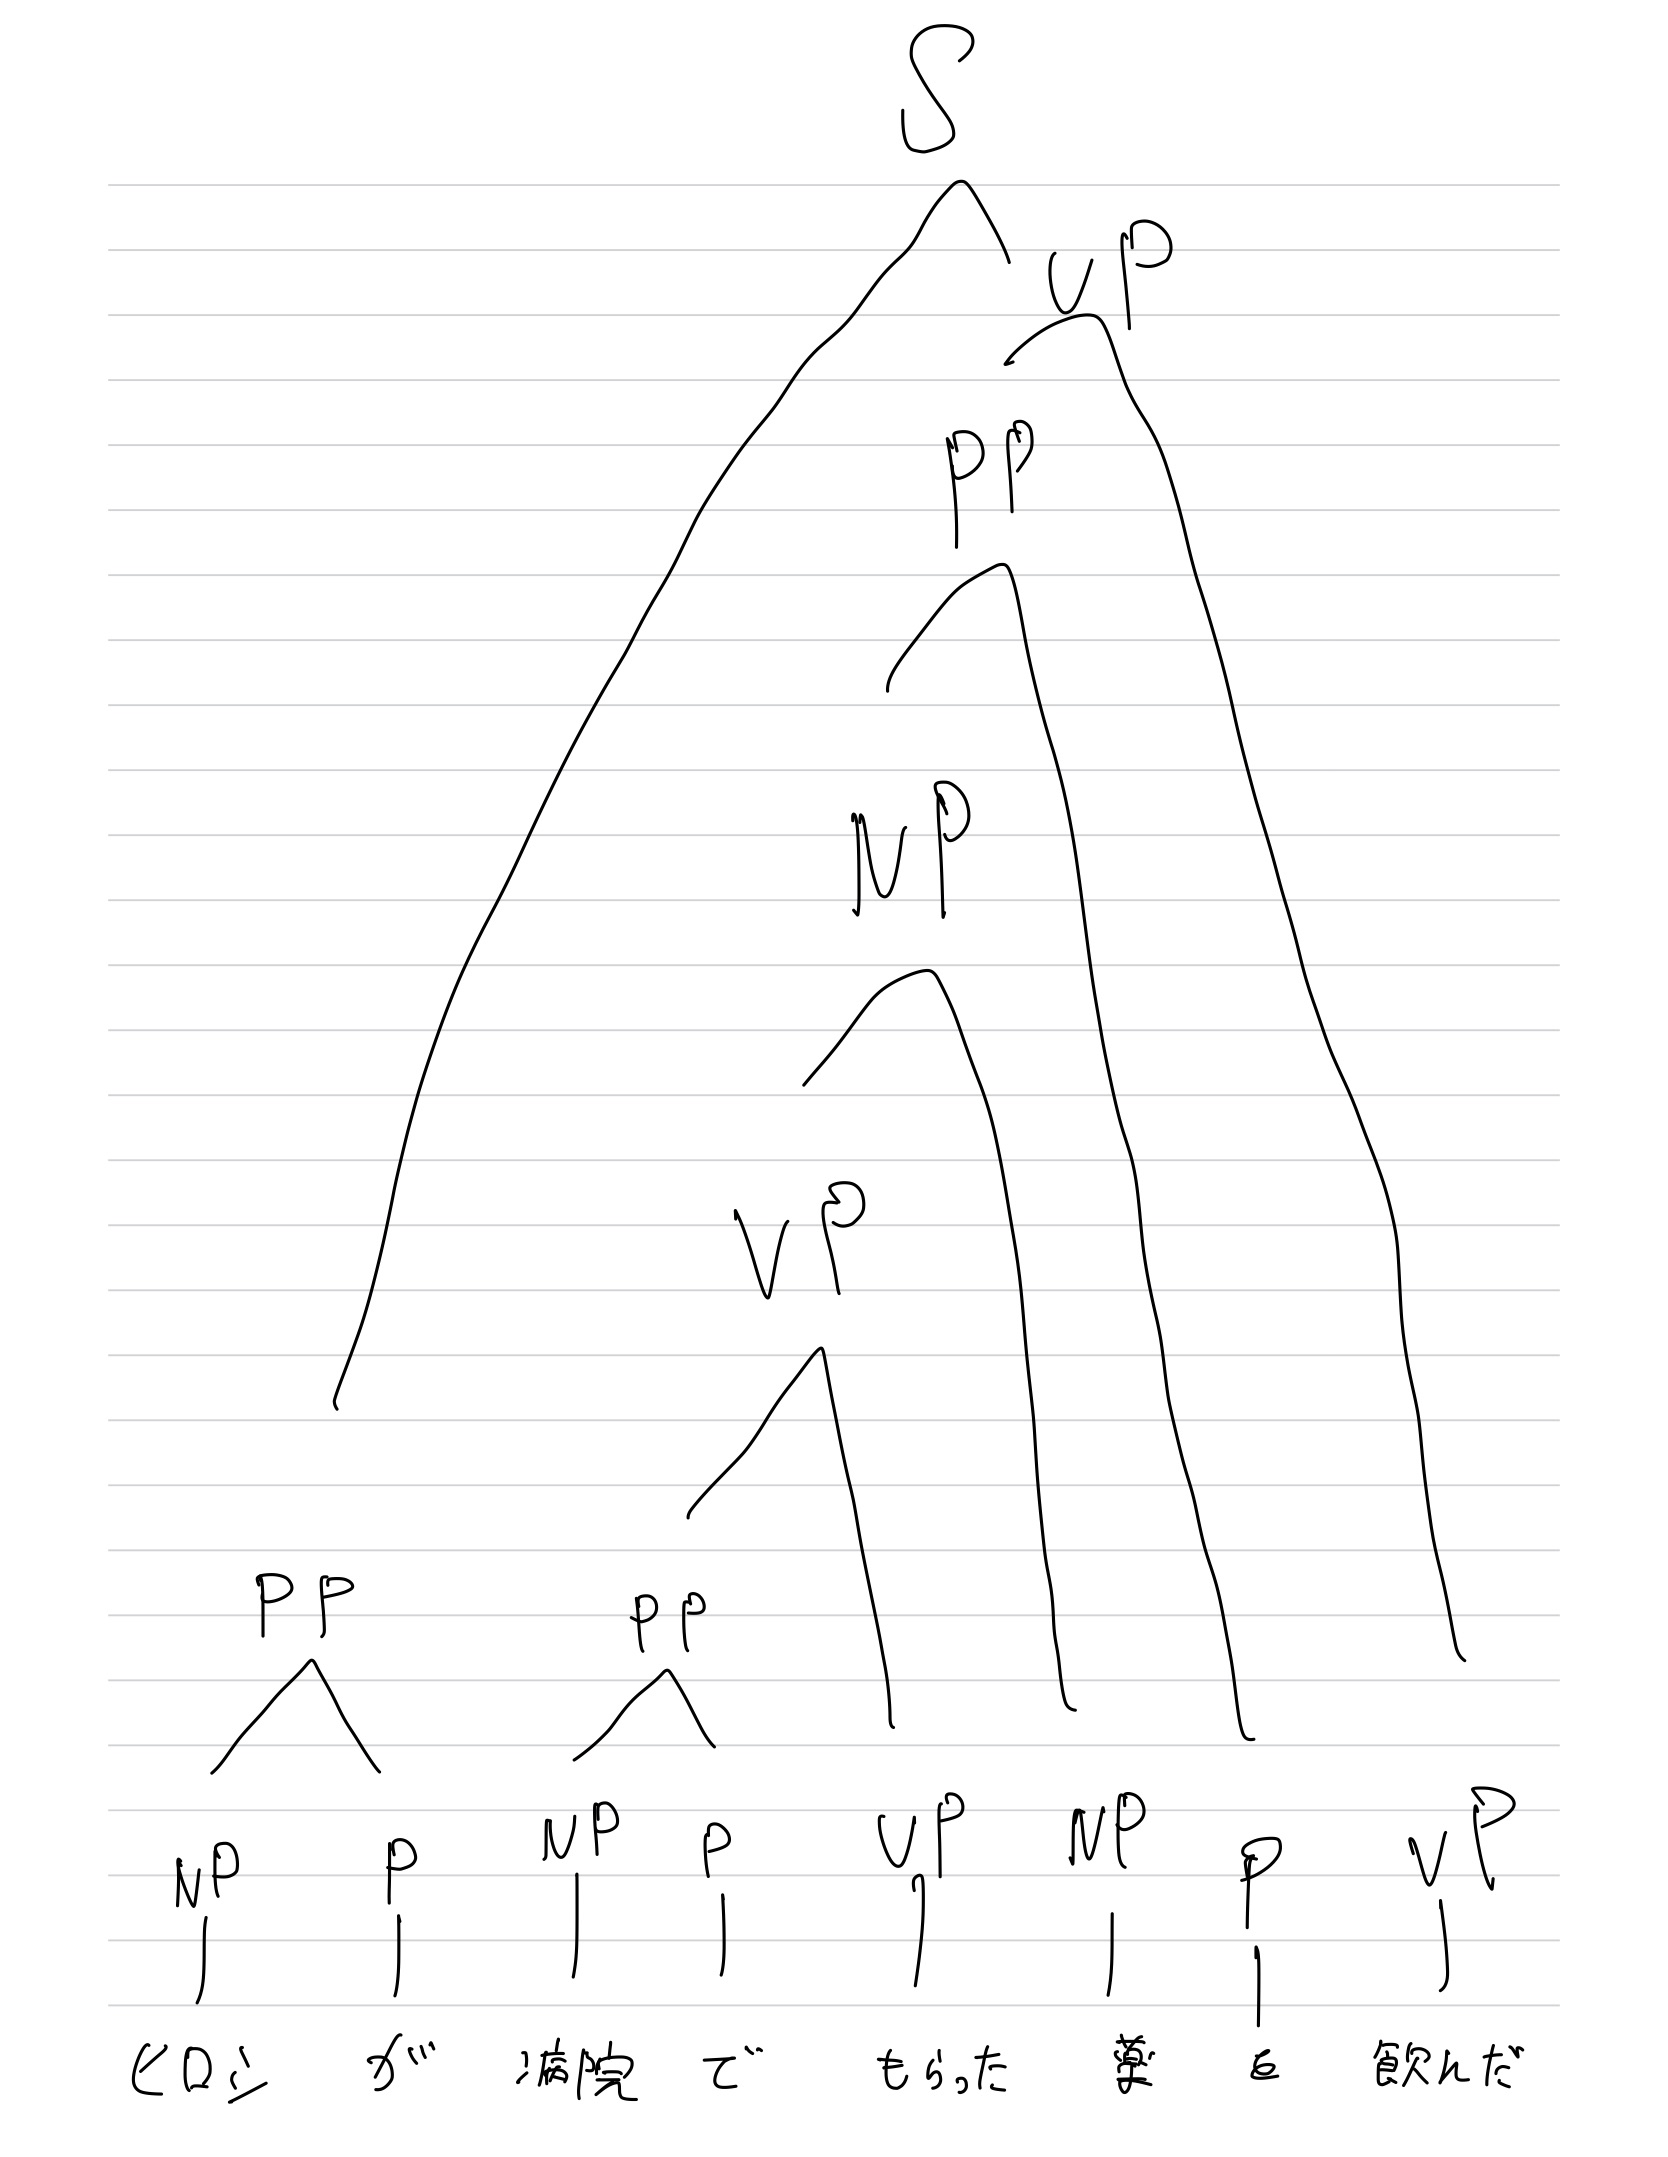 S
VP
PP
NP
VP
PP PP
NP P NP P VP NP P VP
ヒロシ が 病院 で もらった 薬 を 飲んだ